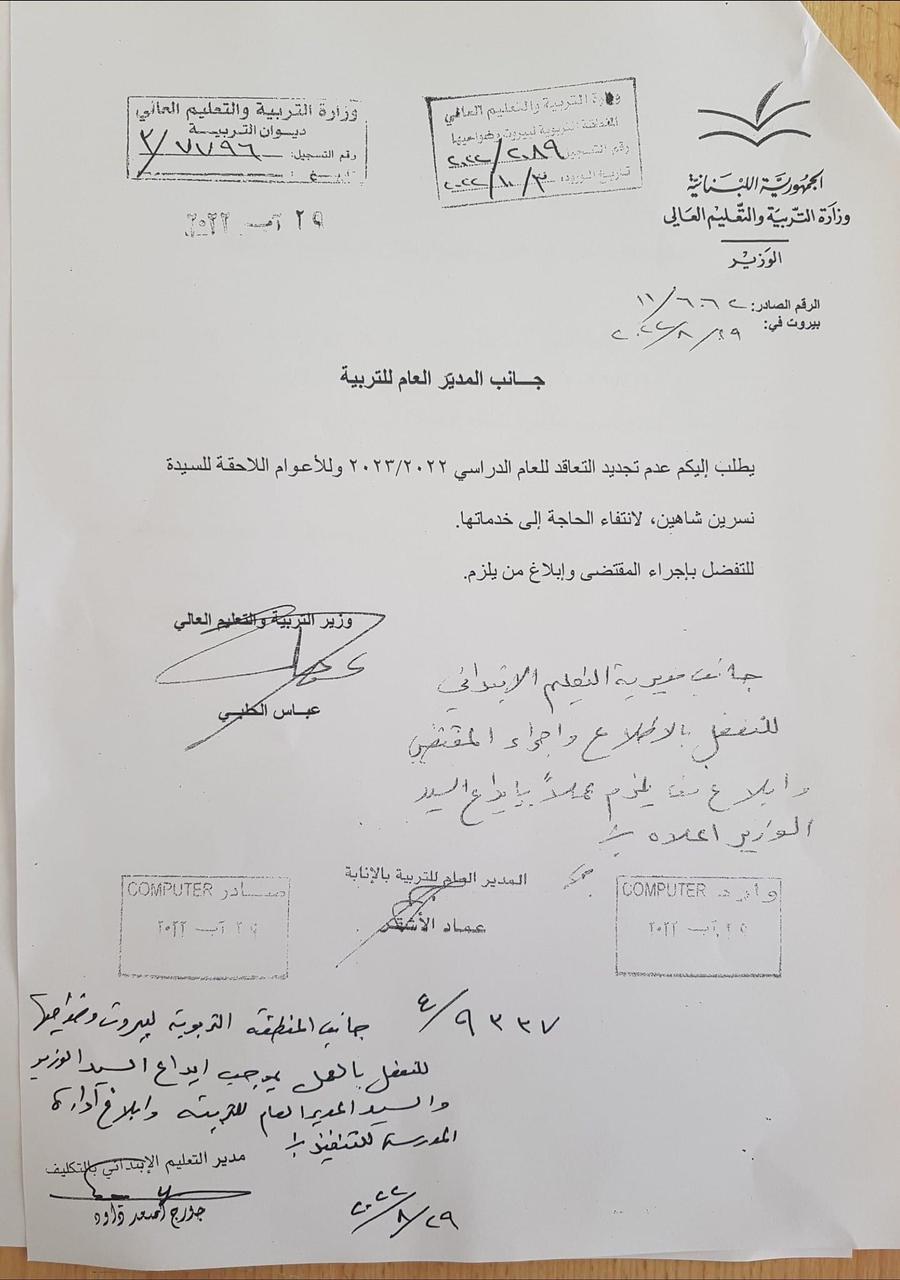 الجمهورية اللبنانية
وزارة التربية والتعليم العالي
الوزير
وزارة التربية والتعليم العالي
المنطقة التربوية لبيروت وضواحيها
رقم التسجيل: ٢٠٢٢/٢٠٨٩
تاريخ الورود:
وزارة التربية والتعليم العالي
ديوان التربية
رقم التسجيل: ٣/٧٧٩٦
٢٩ آب ٢٠٢٢
الرقم الصادر: ١١/٦٠٦٢
بيروت في: ٢٠٢٢/٨/٢٩
جانب المدير العام للتربية
يطلب إليكم عدم تجديد التعاقد للعام الدراسي ٢٠٢٣/٢٠٢٢ وللأعوام اللاحقة للسيدة
نسرين شاهين، لانتفاء الحاجة إلى خدماتها.
للتفضل بإجراء المقتضى وإبلاغ من يلزم.
وزير التربية والتعليم العالي
عباس الحلبي
جانب مديرية التعليم الابتدائي
للتفضل بالاطلاع واجراء المقتضى
وابلاغ من يلزم عملاً بإيداع السيد
الوزير اعلاه
المدير العام للتربية بالإنابة
عماد الأشقر
وارد COMPUTER
٢٩ آب ٢٠٢٢
صادر COMPUTER
٢٩ آب ٢٠٢٢
٤/٩٣٣٧
جانب المنطقة التربوية لبيروت وضواحيها
للتفضل بالعمل بموجب ايداع السيد الوزير
والسيد المدير العام للتربية وابلاغ ادارة
المدرسة للتنفيذ
مدير التعليم الإبتدائي بالتكليف
جورج أسعد داود
٢٠٢٢/٨/٢٩